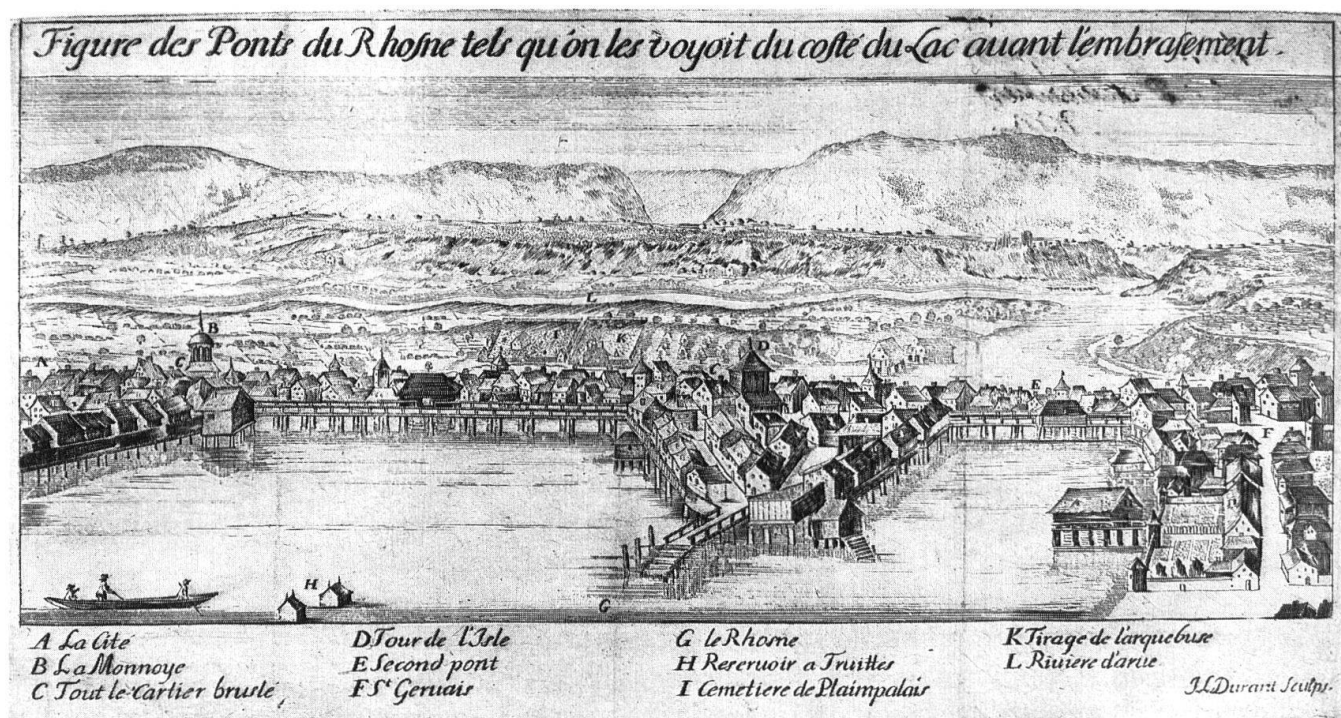 Figure des Ponts du Rhosne tels qu'on les voyoit du costé du Lac auant l'embrasement.
L
B
A
C
I
K
D
C
E
F
H
G
A La Cité
B La Monnoye
C Tout le Cartier bruslé
D Tour de l'Isle
E Second pont
F St Geruais
G le Rhosne
H Reseruoir a Truittes
I Cemetiere de Plaimpalais
K Tirage de l'arquebuse
L Riuiere d'arue
J.L. Durant Sculps.